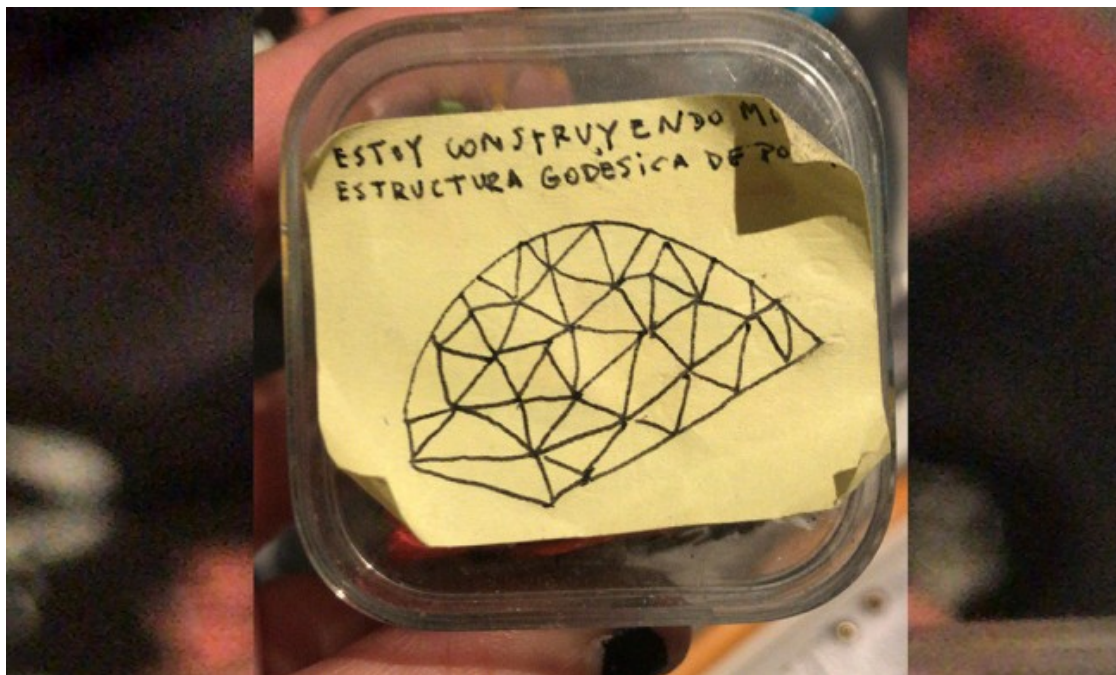 ESTOY CONSTRUYENDO
ESTRUCTURA GODESICA DE